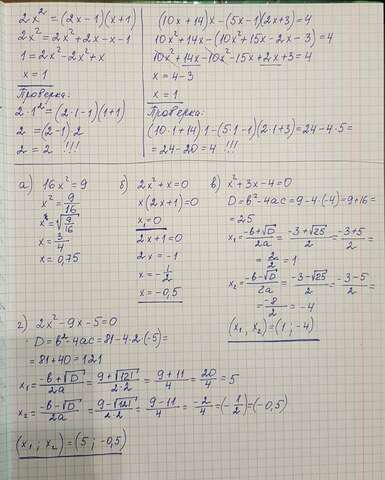 2x² = (2x-1)(x+1)
2x² = 2x²+2x-x-1
1 = 2x²-2x²+x
x = 1
Проверка:
2·1² = (2·1-1)(1+1)
2 = (2-1)2
2 = 2 !!!
(10x+14)x-(5x-1)(2x+3)=4
10x²+14x-(10x²+15x-2x-3)=4
10x²+14x-10x²-15x+2x+3=4
x = 4-3
x = 1
Проверка:
(10·1+14)·1-(5·1-1)(2·1+3)=24-4·5=
=24-20=4 !!!
а) 16x²=9
x²=9/16
x=√9/16
x=3/4
x=0,75
б) 2x²+x=0
x(2x+1)=0
x₁=0
2x+1=0
2x=-1
x=-1/2
x=-0,5
в) x²+3x-4=0
D=b²-4ac=9-4·(-4)=9+16=
=25
x₁=-b+√D/2a=-3+√25/2=-3+5/2=
=2/2=1
x₂=-b-√D/2a=-3-√25/2=-3-5/2=
=-8/2=-4
(x₁, x₂)=(1;-4)
г) 2x²-9x-5=0
D=b²-4ac=81-4·2·(-5)=
=81+40=121
x₁=-b+√D/2a=9+√121/2·2=9+11/4=20/4=5
x₂=-b-√D/2a=9-√121/2·2=9-11/4=-2/4=(-1/2)=(-0,5)
(x₁; x₂)=(5;-0,5)